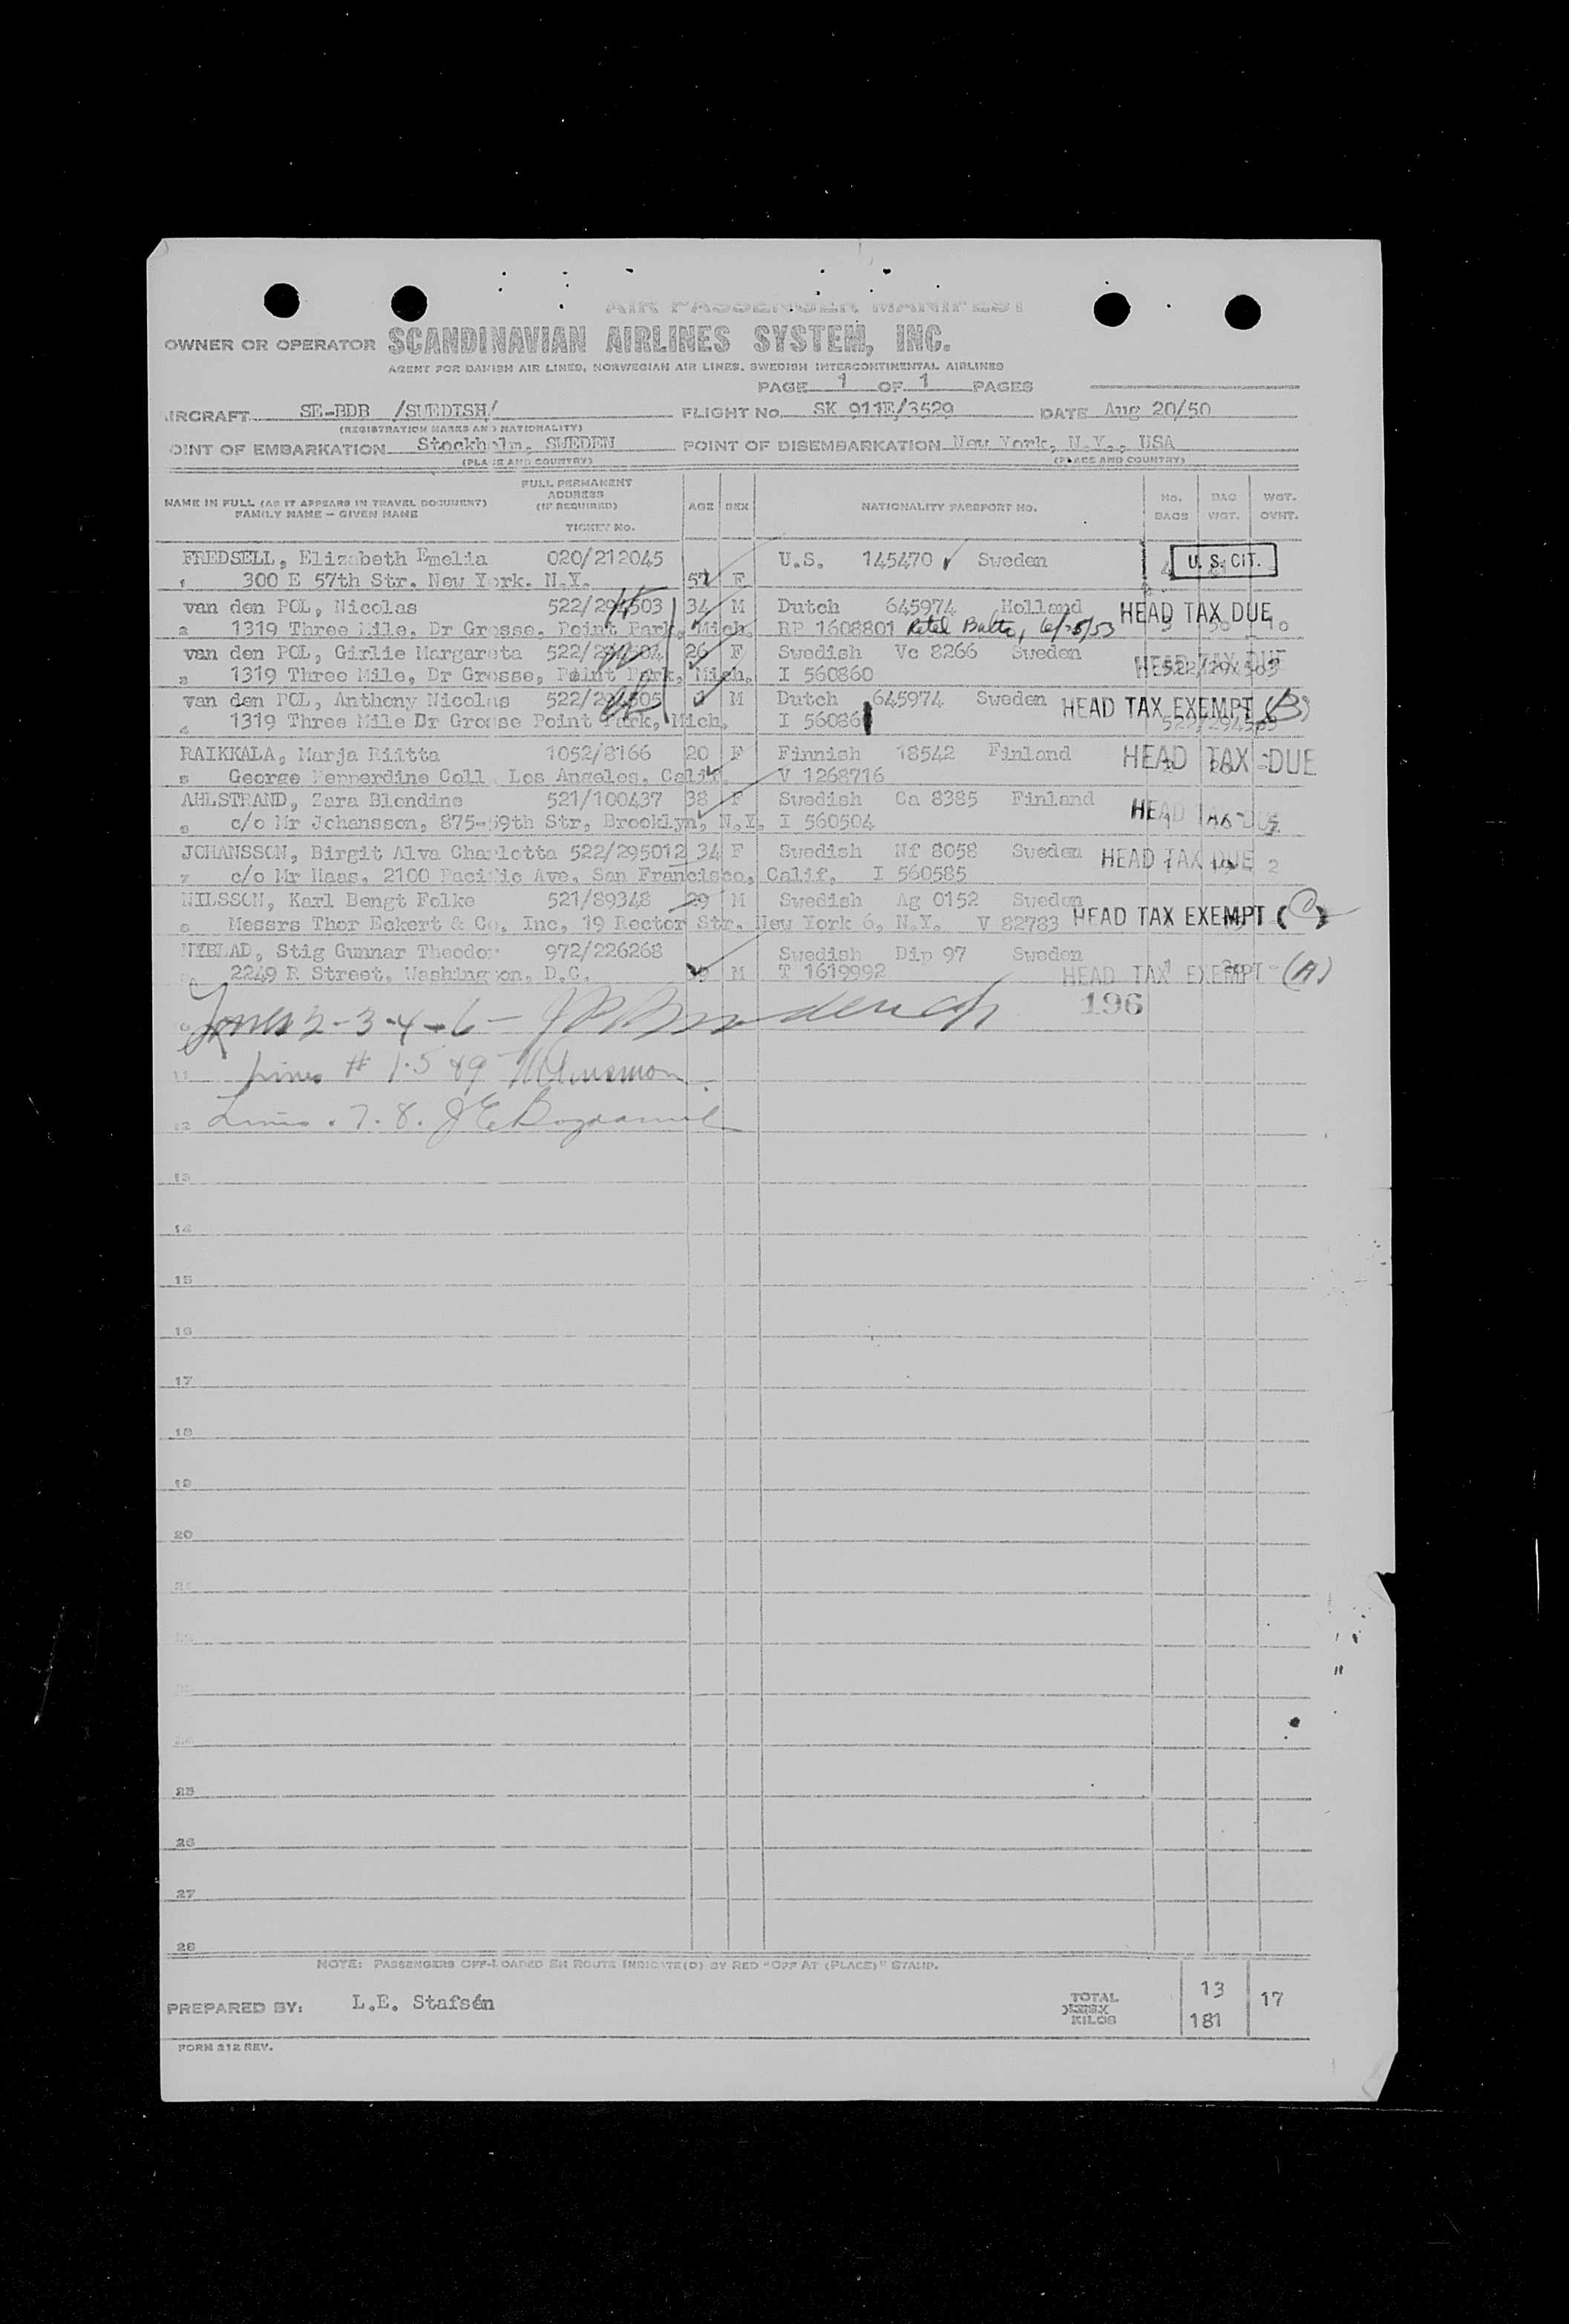 AIR PASSENGER MANIFEST
OWNER OR OPERATOR SCANDINAVIAN AIRLINES SYSTEM, INC.
AGENT FOR DANISH AIR LINES, NORWEGIAN AIR LINES, SWEDISH INTERCONTINENTAL AIRLINES
PAGE 1 OF 1 PAGES
IRCRAFT SE-BDB /SWEDISH/ FLIGHT No. SK 911E/3529 DATE Aug 20/50
(REGISTRATION MARKS AND NATIONALITY)
OINT OF EMBARKATION Stockholm, SWEDEN POINT OF DISEMBARKATION New York, N.Y., USA
(PLACE AND COUNTRY) (PLACE AND COUNTRY)
NAME IN FULL (AS IT APPEARS IN TRAVEL DOCUMENT) FAMILY NAME - GIVEN NAME FULL PERMANENT ADDRESS (IF REQUIRED) TICKET No. AGE SEX NATIONALITY PASSPORT No. No. BAGS BAG WGT. WGT. OVHT.
FREDSELL, Elizabeth Emelia 020/212045 U.S. 145470 ✓ Sweden U. S. CIT.
1 300 E 57th Str. New York. N.Y. 57 F
van den POL, Nicolas 522/294503 34 M Dutch 645974 Holland HEAD TAX DUE
2 1319 Three Mile, Dr Grosse, Point Park, Mich. RP 1608801 10
van den POL, Girlie Margareta 522/294504 26 F Swedish Vc 8266 Sweden HEAD TAX DUE
3 1319 Three Mile, Dr Grosse, Point Park, Mich. I 560860 522/294503
van den POL, Anthony Nicolas 522/294505 M Dutch 645974 Sweden HEAD TAX EXEMPT (B)
4 1319 Three Mile Dr Grosse Point Park, Mich. I 56086 522/294503
RAIKKALA, Marja Riitta 1052/8166 20 F Finnish 18542 Finland HEAD TAX DUE
5 George Pepperdine Coll Los Angeles, Calif. V 1268716
AHLSTRAND, Zara Blondine 521/100437 38 F Swedish Ca 8385 Finland HEAD TAX DUE
6 c/o Mr Johansson, 875-59th Str, Brooklyn, N.Y. I 560504
JOHANSSON, Birgit Alva Charlotta 522/295012 34 F Swedish Nf 8058 Sweden HEAD TAX DUE 2
7 c/o Mr Haas, 2100 Pacific Ave, San Francisco, Calif. I 560585
NILSSON, Karl Bengt Folke 521/89348 29 M Swedish Ag 0152 Sweden
8 Messrs Thor Eckert & Co, Inc, 19 Rector Str. New York 6, N.Y. V 82783 HEAD TAX EXEMPT (C)
NYBLAD, Stig Gunnar Theodor 972/226268 Swedish Dip 97 Sweden
2249 R Street, Washington, D.C. M T 1619992 HEAD TAX EXEMPT (A)
196
Lines 2-3-4-6-
11 Lines # 1.5 & 9
12 Lines . 7. 8.
13
14
15
16
17
18
19
20
21
25
26
27
28
NOTE: PASSENGERS OFF-LOADED EN ROUTE INDICATE(D) BY RED "OFF AT (PLACE)" STAMP.
PREPARED BY: L.E. Stafsén TOTAL KILOS 13 181 17
FORM 212 REV.